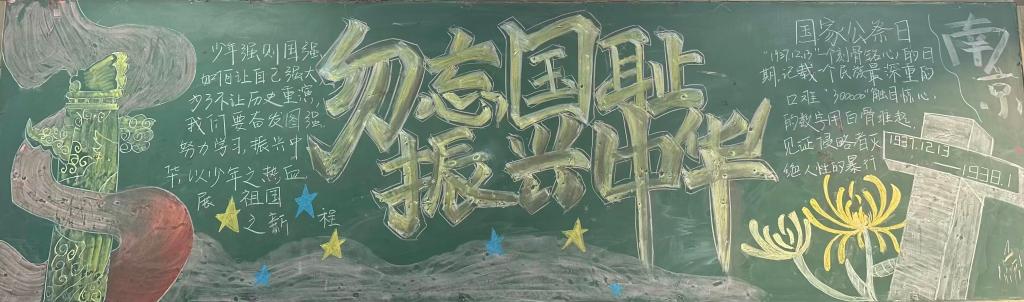 少年强则国强
时间让自己强大
为了不让历史重演,
我们要奋发图强
努力学习,振兴中
华,以少年之热血
展 祖国
之新 程
勿忘国耻
振兴中华
国家公祭日
"1937.12.13"一个刻骨铭心的日
期,记载一个民族最深重的
口难"300000"触目惊心,
的数字用白骨堆起
见证侵略者灭
绝人性的暴行
南京
1937.12.13
-1938.1